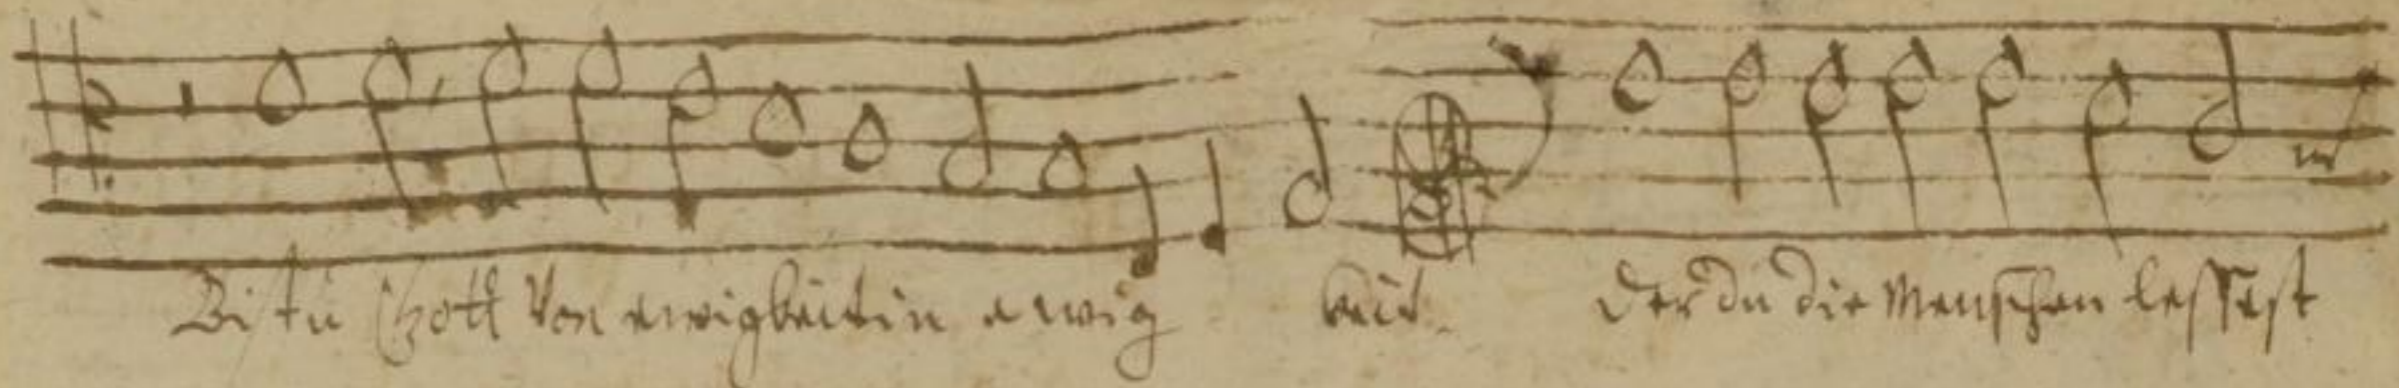 Bistu Gott von ewigkeit in ewig keit. der du die Menschen lessest